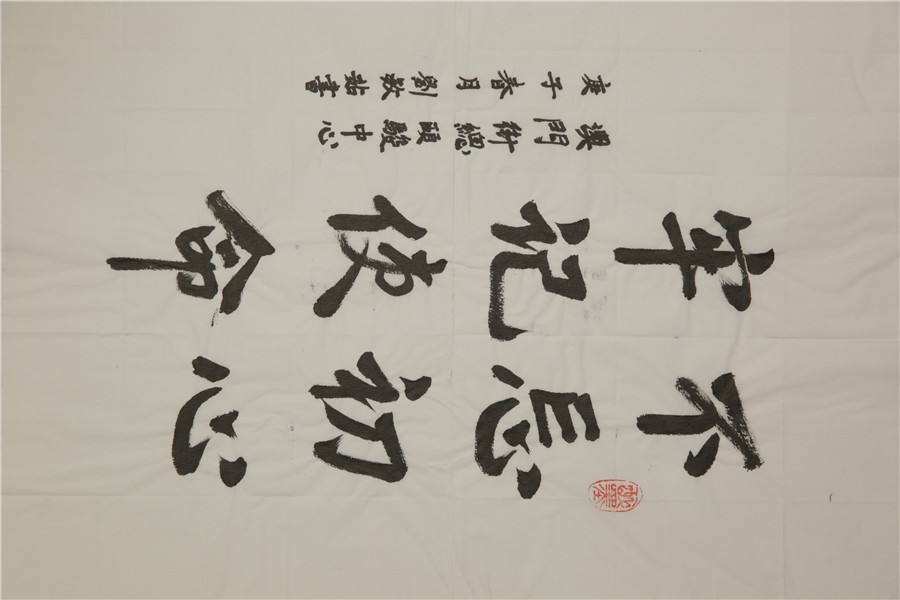 不忘初心
牢記使命
澳門街總頤駿中心
庚子春月劉書